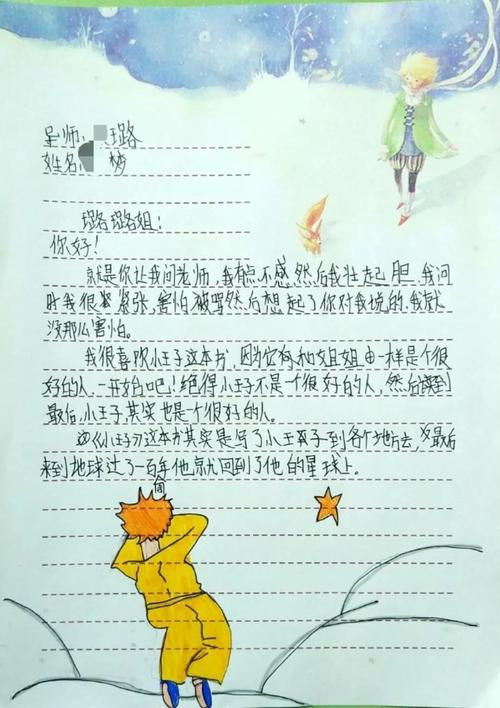 星师: 璐
姓名: 梦
璐璐姐:
你好!
就是你让我问老师,我有点不感,然后我壮起胆,我问
时我很紧张,害怕被骂然后想起了你对我说的,我就
没那么害怕。
我很喜欢小王子这本书,因为它有和姐姐 一样是个很
好的人,一开始吧!绝得小王子不是一个很好的人,然后读到
最后,小王子其实也是个很好的人。
《小王子》这本书其实是写了小王子到各个地方去,最后
来到地球过了一百年他就回到了他的星球上。